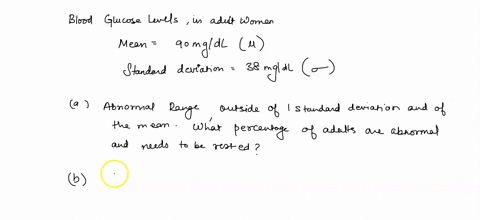 Blood Glucose Levels, in adult women
Mean = 90 mg/dL (μ)
Standard deviation = 38 mg/dL (σ)
(a) Abnormal Range, outside of 1 standard deviation and of
the mean. What percentage of adults are abnormal
and needs to be rested?
(b)